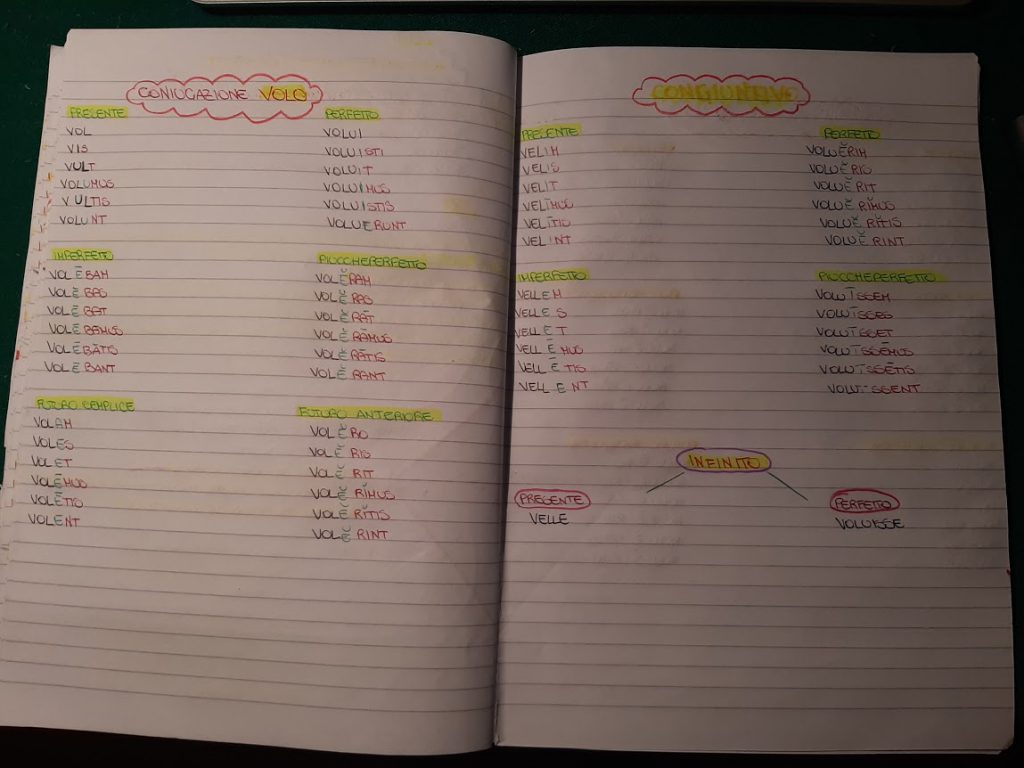 CONIUGAZIONE VOLO
PRESENTE
VOL
VIS
VULT
VOLUMUS
VULTIS
VOLUNT
PERFETTO
VOLUI
VOLUISTI
VOLUIT
VOLUIMUS
VOLUISTIS
VOLUERUNT
IMPERFETTO
VOLĒBAM
VOLĒBAS
VOLĒBAT
VOLĒBAMUS
VOLĒBĀTIS
VOLĒBANT
PIUCCHEPERFETTO
VOLĔRAM
VOLĔRAS
VOLĔRĀT
VOLĔRĀMUS
VOLĔRĀTIS
VOLĔRANT
FUTURO SEMPLICE
VOLAM
VOLES
VOLET
VOLĒMUS
VOLĒTIS
VOLENT
FUTURO ANTERIORE
VOLĔRO
VOLĔRIS
VOLĔRIT
VOLĔRĬMUS
VOLĔRĬTIS
VOLĔRINT
CONGIUNTIVO
PRESENTE
VELIM
VELIS
VELIT
VELĪMUS
VELĪTIS
VELINT
PERFETTO
VOLUĔRIM
VOLUĔRIS
VOLUĔRIT
VOLUĔRĬMUS
VOLUĔRĬTIS
VOLUĔRINT
IMPERFETTO
VELLEM
VELLES
VELLET
VELLĒMUS
VELLĒTIS
VELLENT
PIUCCHEPERFETTO
VOLUĪSSEM
VOLUĪSSES
VOLUĪSSET
VOLUĪSSĒMUS
VOLUĪSSĒTIS
VOLUĪSSENT
INFINITO
PRESENTE
VELLE
PERFETTO
VOLUISSE